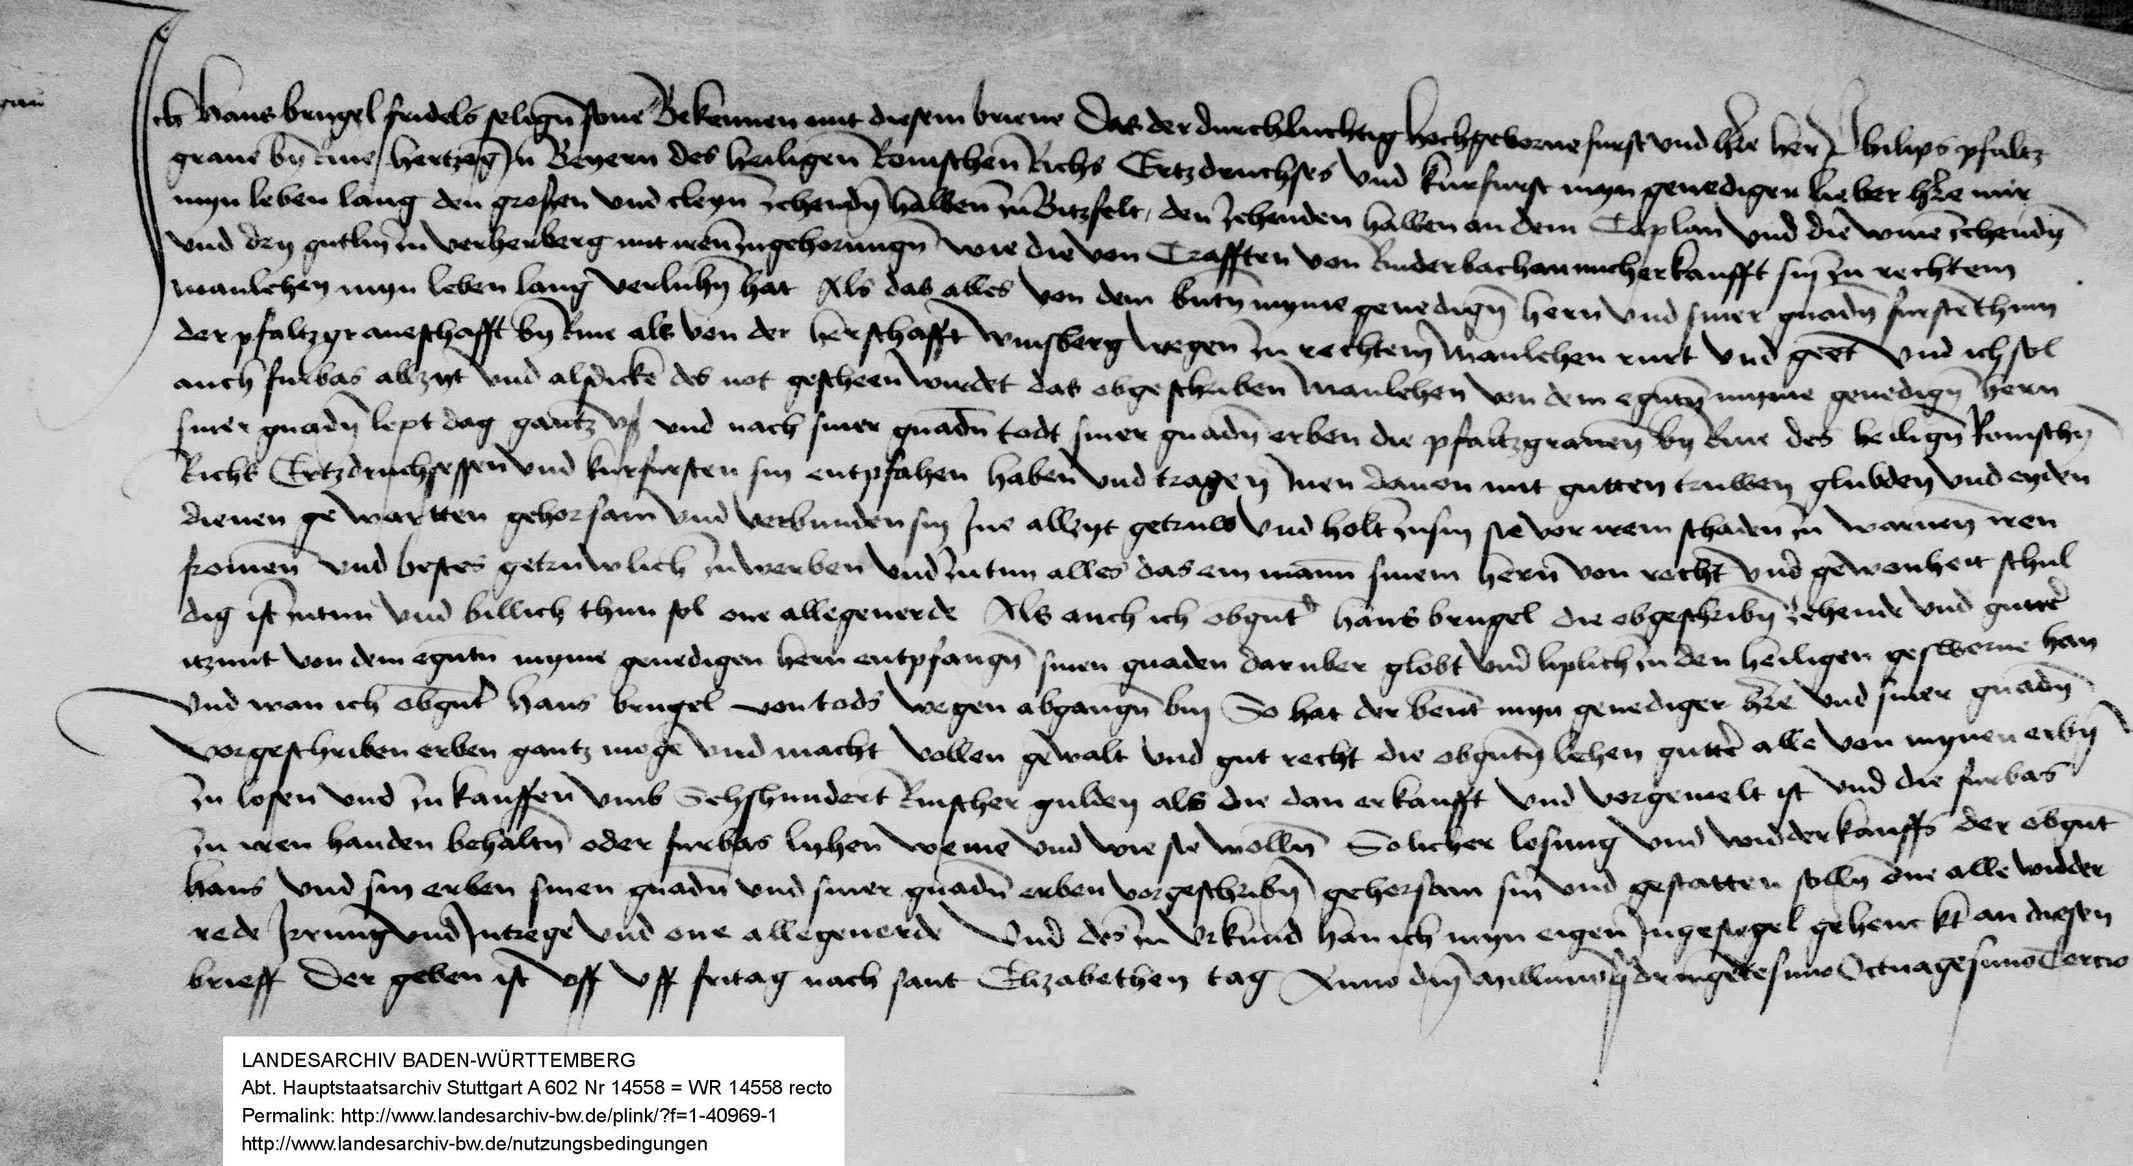 Ich hans brugel fridels seligen sone Bekennen mit diesem brieue Das der durchluchtig hochgeborne furst und hre her Philips pfaltz
graue by Rine hertzog in Beyern des heiligen Romischen Richs Ertzdruchses und kurfurst myn genediger lieber hre mir
myn leben lang den grossen und cleyn zehendn halben zu Bitzfelt, den zehenden halben an dem Caplan und die wine zehendn
und dry gutlin in verherberg mit iren zugehorungn wie die von Crafften von Ruderbach an mich erkaufft sin zu rechtem
manlehen myn leben lang verluhn hat Als das alles von dem gnten myme genedign hern und siner gnadn furstethum
der pfaltzgraueschafft by Rine als von der herschafft winsberg wegen zu rechtem manlehen rurt und geet und ich sol
auch furbas allzyt und als dicke des not gescheen wurdet das obgeschriben manlehen von dem egntn myme genedign hern
siner gnadn lept dag gantz uß und nach siner gnadn todt siner gnadn erben die pfaltzgrauen by Rine des heilign Romischn
Richs Ertzdruchsessen und kurfursten sin entpfahen haben und tragen Inen dauon mit gutten truwen glubden und eyden
dienen gewartten gehorsam und verbunden sin Ine allzyt getruw und holt zu sin sie vor irem schaden zu warnen iren
fromen und bestes getruwlich zu werben und zu tun alles das ein mann sinem hern von recht und gewonheit schul
dig ist zu tun und billich thun sol one alle geuerde Als auch ich obgnt hans brugel die obgeschribn zehende und gutter
itzunt von dem egntn myme genedigen hern entpfangn sinen gnaden daruber globt und liplich zu den heiligen gesworne han
Und wan ich obgnt hans brugel von tods wegen abgangn bin So hat der bent myn genediger hre und siner gnadn
vorgeschriben erben gantz moge und macht vollen gewalt und gut recht die obgntn lehen gutter alle von mynen erbn
zu losen und zu kauffen umb Sehshundert Rinscher gulden als die dan erkaufft und vorgemelt ist und die furbas
zu iren handen behaltn oder furbas lyhen weme und wie sie wolln Solicher losung und widderkauffs der obgnt
hans und sin erben sinen gnadn und siner gnadn erben vorgeschribn gehorsam sin und gestatten solln one alle widder
rede Irrung und Intrege und one alle geuerde Und des zu Urkund han ich myn eigen Ingesiegel gehenckt an diesen
brieff Der geben ist uff uff fritag nach sant Elizabethen tag Anno dni Millimo qdringetesimo Octuagesimo Tercio
LANDESARCHIV BADEN-WÜRTTEMBERG
Abt. Hauptstaatsarchiv Stuttgart A 602 Nr 14558 = WR 14558 recto
Permalink: http://www.landesarchiv-bw.de/plink/?f=1-40969-1
http://www.landesarchiv-bw.de/nutzungsbedingungen